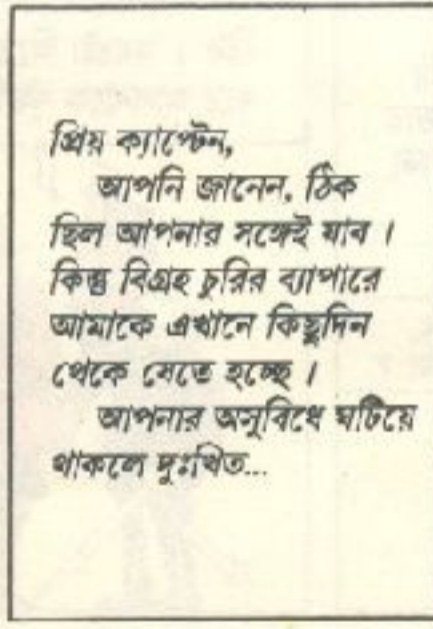 প্রিয় ক্যাপ্টেন,
আপনি জানেন, ঠিক
ছিল আপনার সঙ্গেই যাব ।
কিন্তু বিগ্রহ চুরির ব্যাপারে
আমাকে এখানে কিছুদিন
থেকে যেতে হচ্ছে ।
আপনার অসুবিধে ঘটিয়ে
থাকলে দুঃখিত...